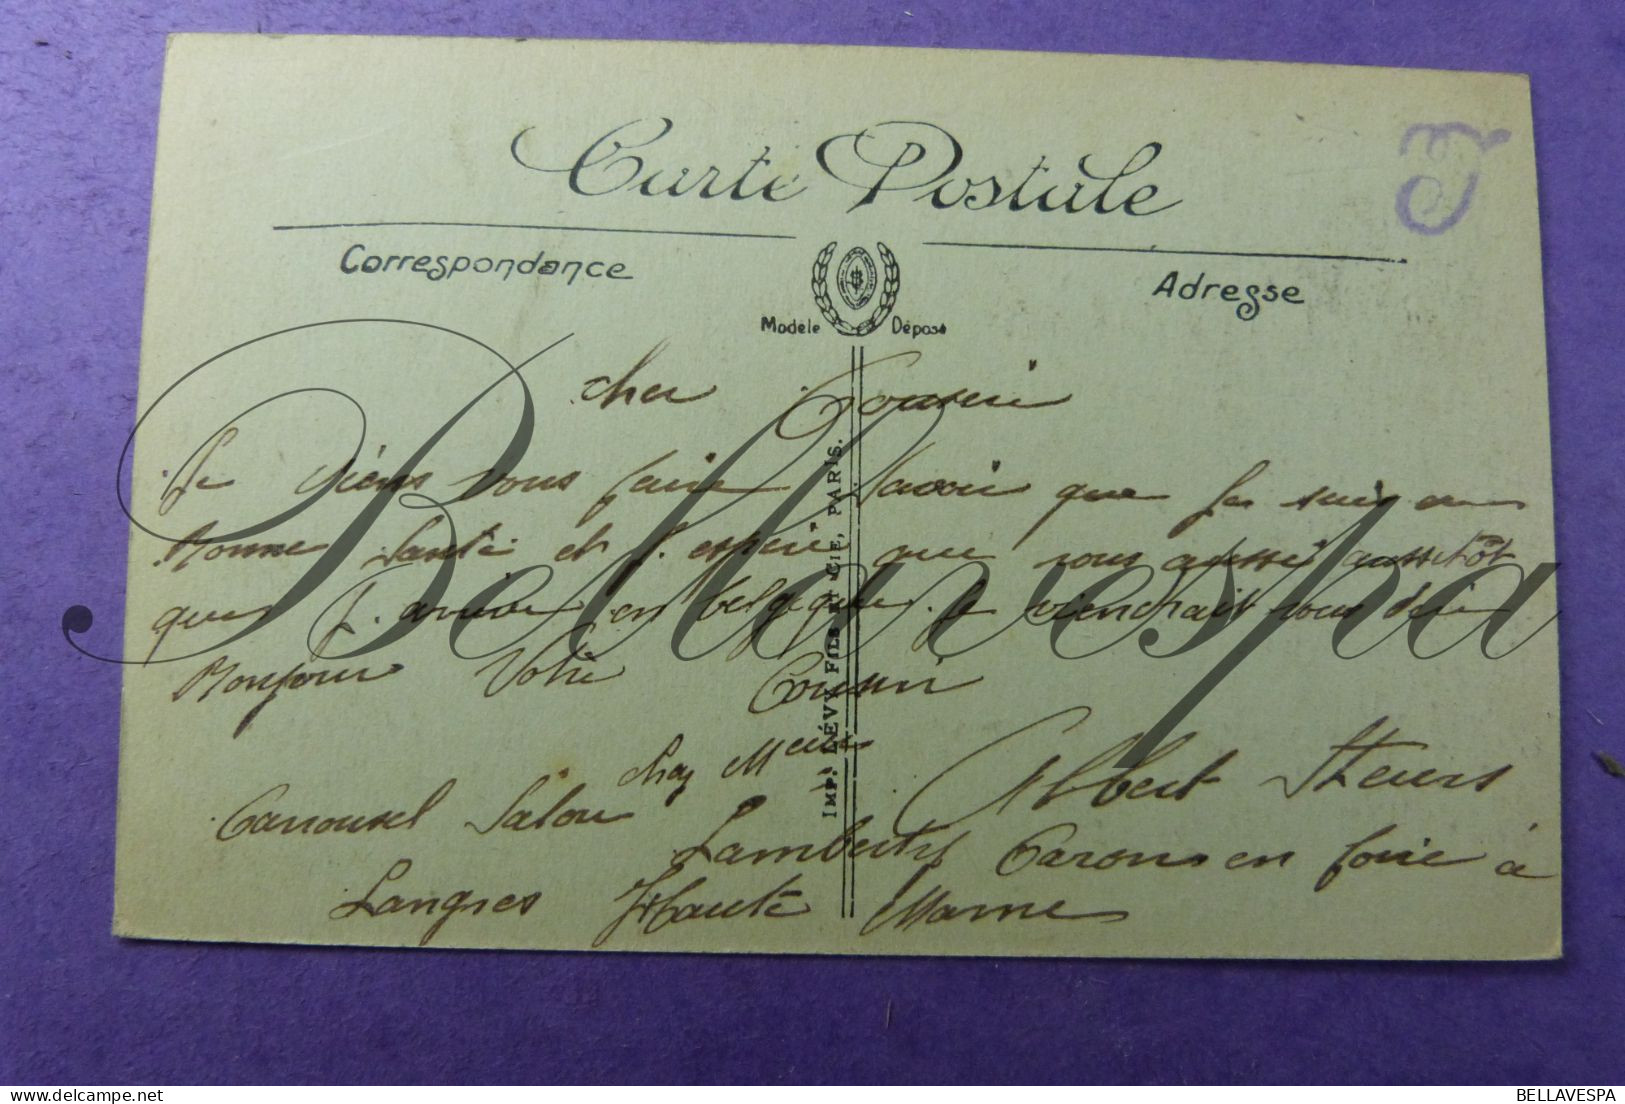 Carte Postale
Correspondance
Adresse
Modèle Déposé
cher Cousin
Je viens vous faire savoir que je suis en
Bonne santé et j. espere que vous aussi aussitôt
que j. arrive en belgique je viendrait vous dire
Bonjour Votre Cousin
Albert Steurs
chez Meur
Carrousel Salon Lambertÿ Caron en foire à
Langres Haute Marne
IMP. LÉVY FILS ET CIE, PARIS.
Bellavespa
BELLAVESPA